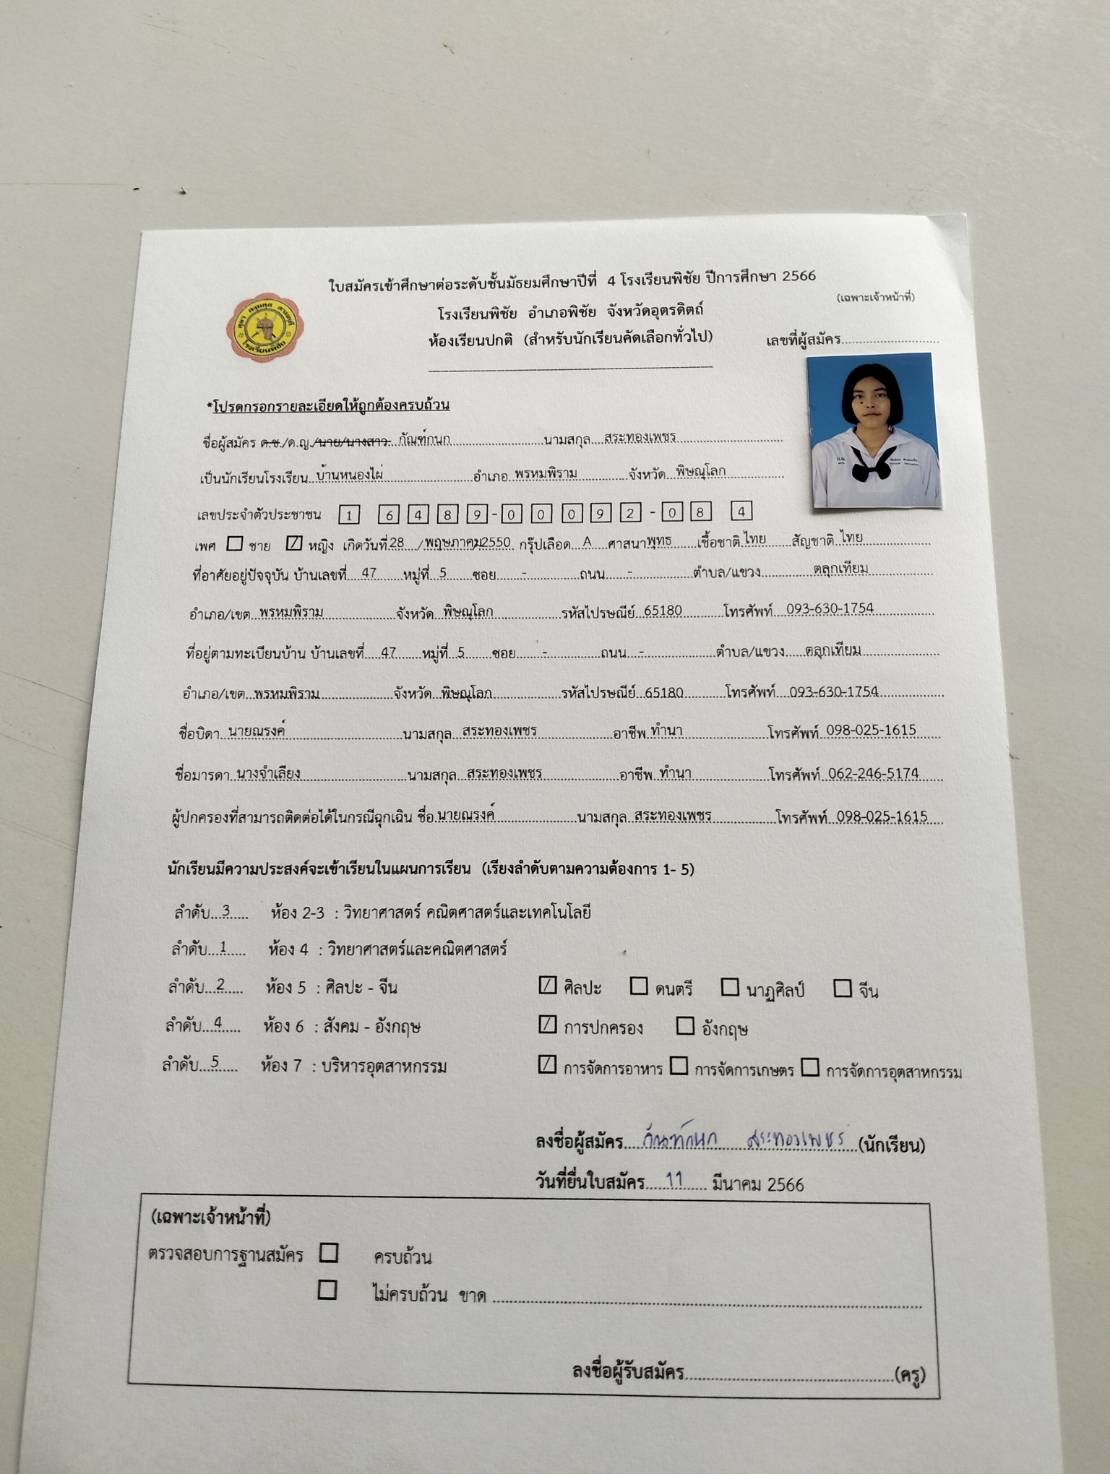 ใบสมัครเข้าศึกษาต่อระดับชั้นมัธยมศึกษาปีที่ 4 โรงเรียนพิชัย ปีการศึกษา 2566
(เฉพาะเจ้าหน้าที่)
โรงเรียนพิชัย อำเภอพิชัย จังหวัดอุตรดิตถ์
ห้องเรียนปกติ (สำหรับนักเรียนคัดเลือกทั่วไป)
เลขที่ผู้สมัคร
*โปรดกรอกรายละเอียดให้ถูกต้องครบถ้วน
ชื่อผู้สมัคร ด.ช./ด.ญ./นาย/นางสาว กัณฑ์กนก นามสกุล สระทองเพชร
เป็นนักเรียนโรงเรียน บ้านหนองไผ่ อำเภอ พรหมพิราม จังหวัด พิษณุโลก
เลขประจำตัวประชาชน 1 6489-00092-08 4
เพศ ชาย / หญิง เกิดวันที่ 28 /พฤษภาคม/2550 กรุ๊ปเลือด A ศาสนา พุทธ เชื้อชาติ ไทย สัญชาติ ไทย
ที่อาศัยอยู่ปัจจุบัน บ้านเลขที่ 47 หมู่ที่ 5 ซอย - ถนน - ตำบล/แขวง ตลุกเทียม
อำเภอ/เขต พรหมพิราม จังหวัด พิษณุโลก รหัสไปรษณีย์ 65180 โทรศัพท์ 093-630-1754
ที่อยู่ตามทะเบียนบ้าน บ้านเลขที่ 47 หมู่ที่ 5 ซอย - ถนน - ตำบล/แขวง ตลุกเทียม
อำเภอ/เขต พรหมพิราม จังหวัด พิษณุโลก รหัสไปรษณีย์ 65180 โทรศัพท์ 093-630-1754
ชื่อบิดา นายณรงค์ นามสกุล สระทองเพชร อาชีพ ทำนา โทรศัพท์ 098-025-1615
ชื่อมารดา นางจำเลียง นามสกุล สระทองเพชร อาชีพ ทำนา โทรศัพท์ 062-246-5174
ผู้ปกครองที่สามารถติดต่อได้ในกรณีฉุกเฉิน ชื่อ นายณรงค์ นามสกุล สระทองเพชร โทรศัพท์ 098-025-1615
นักเรียนมีความประสงค์จะเข้าเรียนในแผนการเรียน (เรียงลำดับตามความต้องการ 1- 5)
ลำดับ 3 ห้อง 2-3 : วิทยาศาสตร์ คณิตศาสตร์และเทคโนโลยี
ลำดับ 1 ห้อง 4 : วิทยาศาสตร์และคณิตศาสตร์
ลำดับ 2 ห้อง 5 : ศิลปะ - จีน / ศิลปะ ดนตรี นาฏศิลป์ จีน
ลำดับ 4 ห้อง 6 : สังคม - อังกฤษ / การปกครอง อังกฤษ
ลำดับ 5 ห้อง 7 : บริหารอุตสาหกรรม / การจัดการอาหาร การจัดการเกษตร การจัดการอุตสาหกรรม
ลงชื่อผู้สมัคร กัณฑ์กนก สระทองเพชร (นักเรียน)
วันที่ยื่นใบสมัคร 11 มีนาคม 2566
(เฉพาะเจ้าหน้าที่)
ตรวจสอบการฐานสมัคร ครบถ้วน
ไม่ครบถ้วน ขาด
ลงชื่อผู้รับสมัคร (ครู)